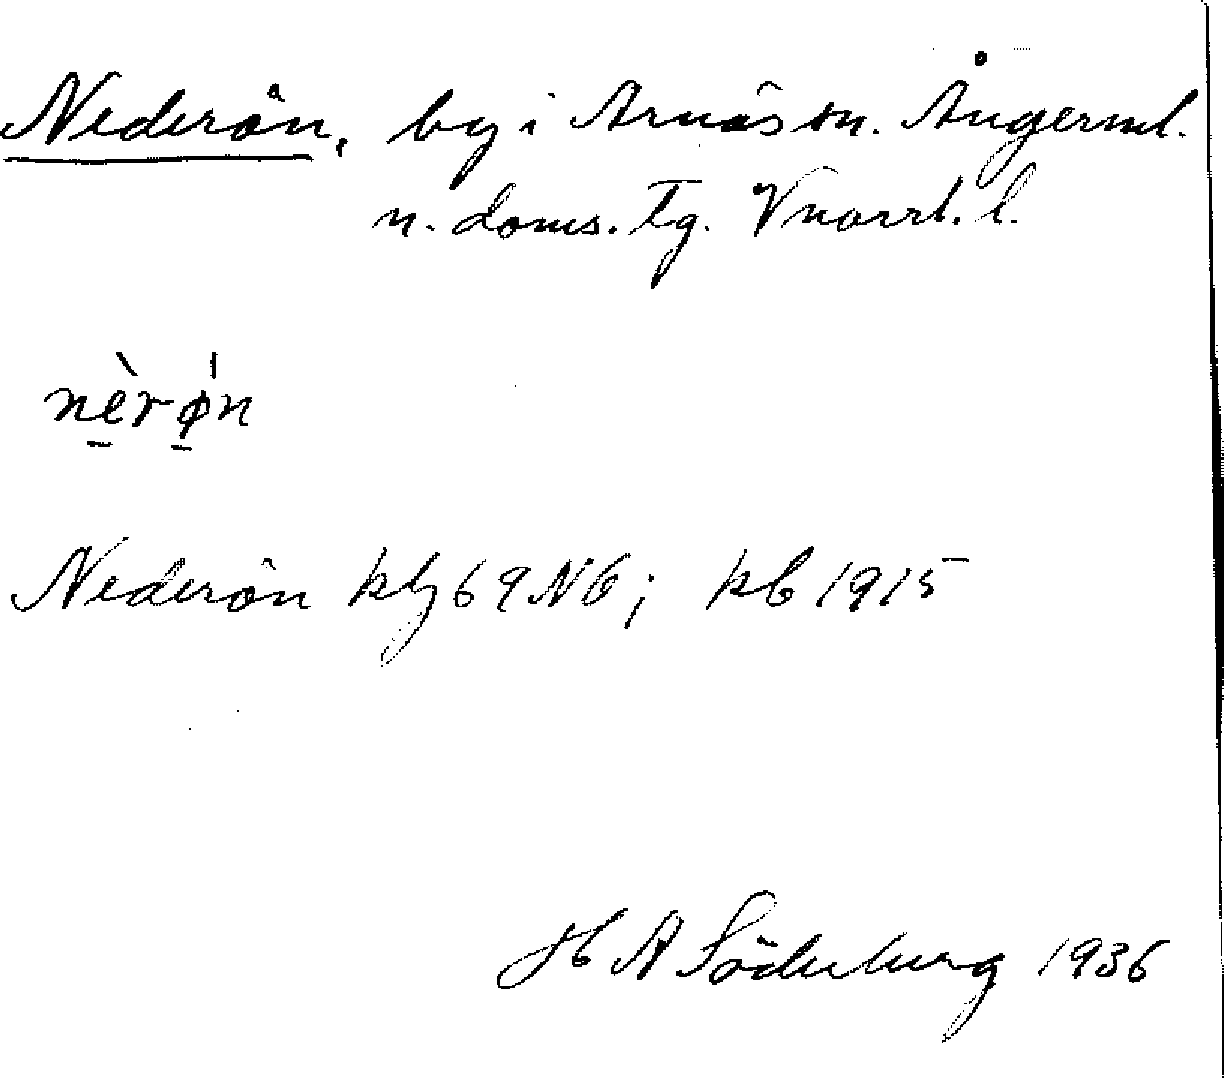 Nederön, by i Arnäs sn. Ångerml.
n. doms. Tg. Vnorrl. l.
nèrø̍n
Nederön klg 69 N6; kb 1915
H A Söderberg 1936